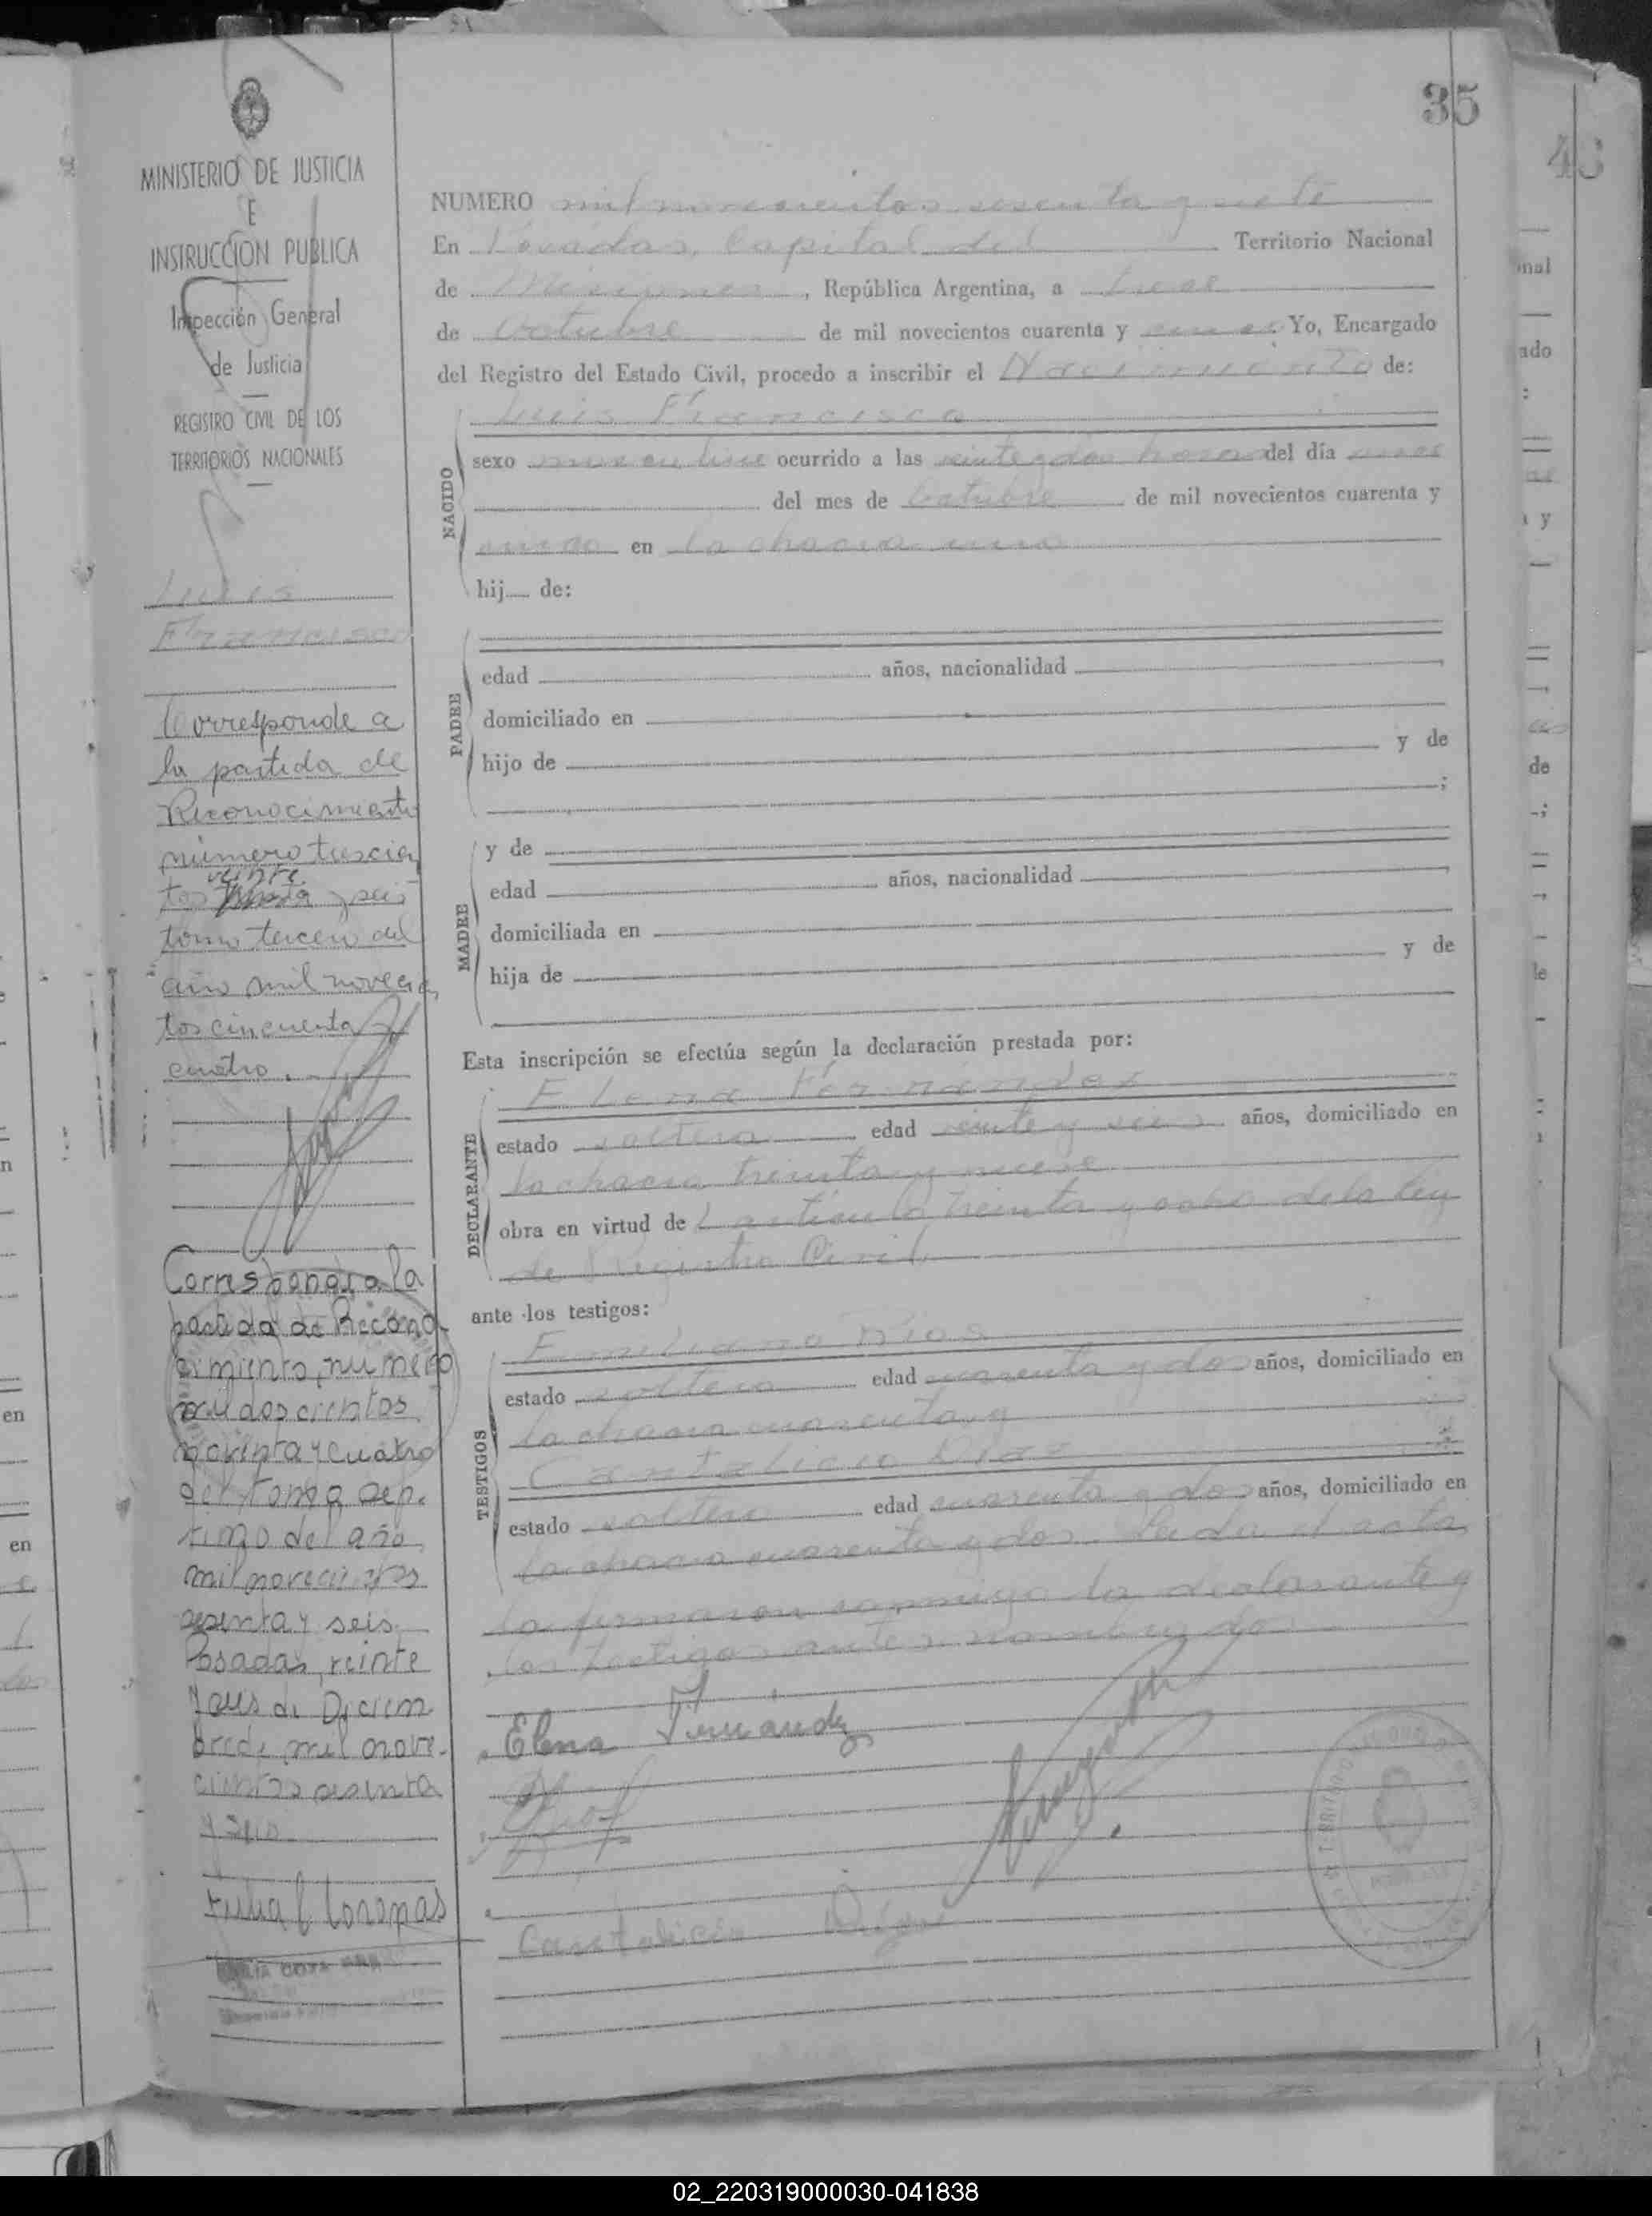 35
MINISTERIO DE JUSTICIA
E
INSTRUCCION PUBLICA
Inspección General
de Justicia
REGISTRO CIVIL DE LOS
TERRITORIOS NACIONALES
Luis
Francisco
Corresponde a
la partida de
Reconocimiento
número trescien
veinte
tos y seis
tomo tercero del
año mil novecien
tos cincuenta y
cuatro.
Corresponde a la
partida de Recono
cimiento, numero
mil doscientos
noventa y cuatro
del tomo sep-
timo del año
mil novecientos
sesenta y seis.
Posadas, veinte
de Diciem
bre de mil nove-
cientos sesenta
y seis
NUMERO mil novecientos sesenta y siete
En Posadas, Capital del Territorio Nacional
de Misiones, República Argentina, a trece
de Octubre de mil novecientos cuarenta y cinco Yo, Encargado
del Registro del Estado Civil, procedo a inscribir el Nacimiento de:
NACIDO
Luis Francisco
sexo masculino ocurrido a las veinte y dos horas del día once
del mes de Octubre de mil novecientos cuarenta y
cinco en la chacra una
hij de:
PADRE
edad años, nacionalidad
domiciliado en
hijo de y de
;
MADRE
y de
edad años, nacionalidad
domiciliada en
hija de y de
Esta inscripción se efectúa según la declaración prestada por:
DECLARANTE
Elena Fernández
estado soltera edad veinte y seis años, domiciliado en
la chacra treinta y nueve
obra en virtud de l artículo treinta y ocho de la ley
de Registro Civil
ante los testigos:
TESTIGOS
Emiliano Rios
estado soltero edad cuarenta y dos años, domiciliado en
la chacra cuarenta y
Cantalicio Diaz
estado soltero edad cuarenta y dos años, domiciliado en
la chacra cuarenta y dos. Leida el acta,
la firmaron conmigo la declarante y
los testigos antes nombrados
Elena Fernández
Cantalicio
02_220319000030-041838